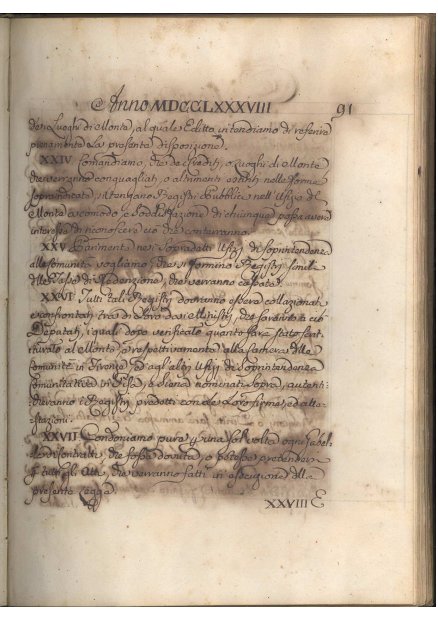 Anno MDCCLXXXVIII 91
dei Luoghi di Monte, al quale Editto intendiamo di referire
pienamente la presente disposizione.
XXIV Comandiamo, che de crediti, o Luoghi di Monte
che verranno conguagliati, o altrimenti estinti nella forma
sopraindicata, si tengano Registri Pubblici nell' Ufizio del
Monte a comodo e soddisfazione di chiunque possa avere
interesse di riconoscere ciò che conterranno.
XXV Parimente nei sopradetti Ufizj di soprintendenza
alle comunità vogliamo, che vi si formino i Registri simili
delle Tasse di Redenzione, che verranno cessate.
XXVI Tutti tali Registri dovranno essere collazionati
e confrontati tra di Loro dai Ministri, che saranno a ciò
Deputati, i quali dopo verificato quanto sarà stato
al Monte, o respettivamente alla Camera delle
comunità in Firenze, ed agl' altri Ufizj di Soprintendenza
comunitativa in Pisa, e Siena nominati sopra, autenti-
cheranno i Registri predetti con le Loro firme, ed atte-
stazioni.
XXVII Condoniamo pure per una sol volta ogni Gabel-
la di contratti, che fosse dovuta, o potesse pretendersi
per tutti gli Atti, che verranno fatti in esecuzione della
presente Legge
XXVIII E